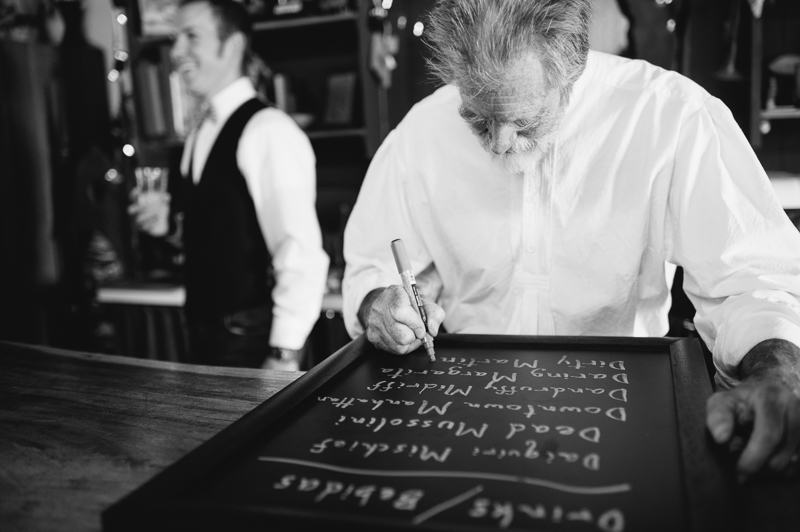 Drinks / Bebidas
Daiquiri Mischief
Dead Mussolini
Downtown Manhattan
Dandruffy Midriff
Daring Margarita
Dirty Martin